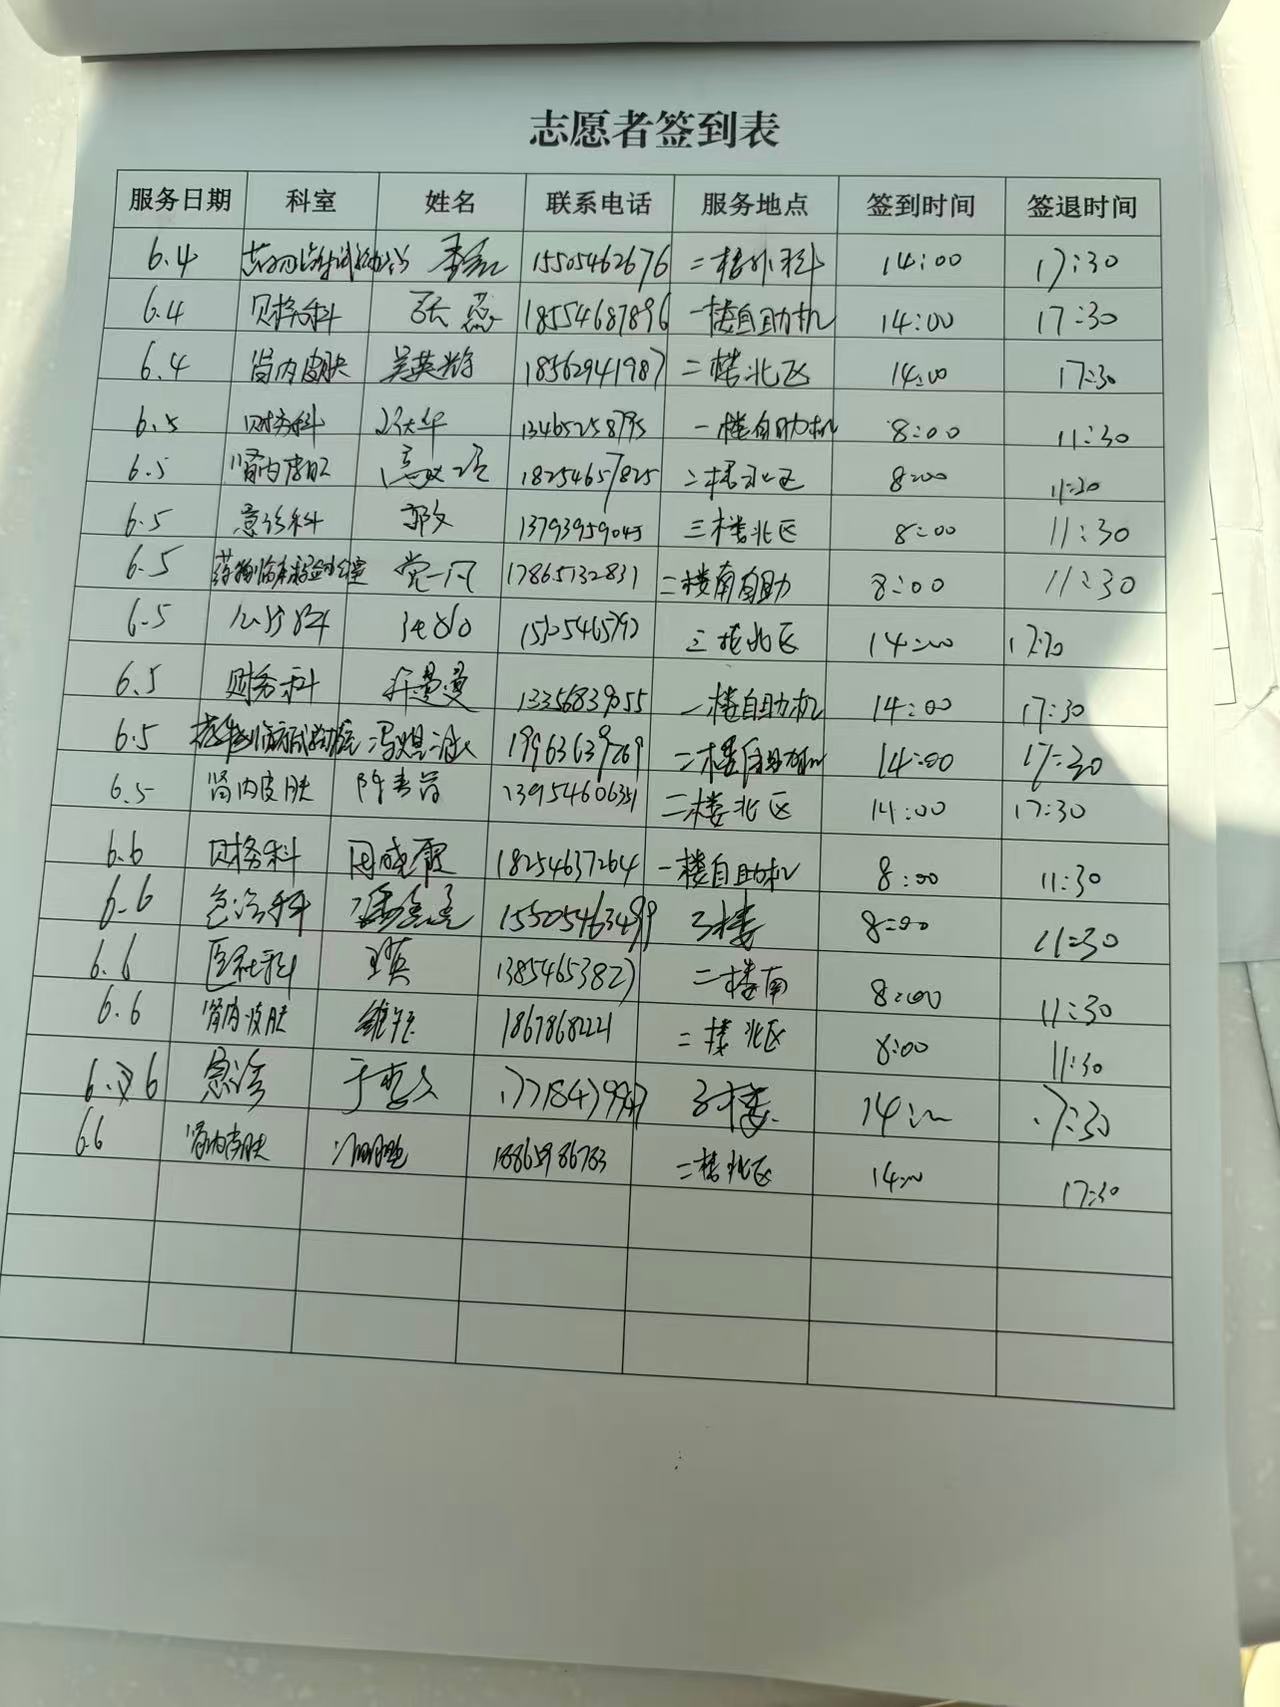 志愿者签到表
服务日期 科室 姓名 联系电话 服务地点 签到时间 签退时间
6.4 15505462676 二楼外科 14:00 17:30
6.4 财务科 张蕊 18554687896 一楼自助机 14:00 17:30
6.4 肾内皮肤 吴英辉 18562941987 二楼北区 14:00 17:30
6.5 财务科 13465258795 一楼自助机 8:00 11:30
6.5 肾内皮肤 18254657825 二楼北区 8:00 11:30
6.5 急诊科 郭文 13793959045 三楼北区 8:00 11:30
6.5 党一凡 17865732831 二楼南自助 8:00 11:30
6.5 三楼北区 14:00 17:30
6.5 财务科 曼曼 13356839055 一楼自助机 14:00 17:30
6.5 19963639269 二楼自助机 14:00 17:30
6.5 肾内皮肤 13954606351 二楼北区 14:00 17:30
6.6 财务科 周咸霞 18254637264 一楼自助机 8:00 11:30
6.6 急诊科 15505463499 3楼 8:00 11:30
6.6 13854653827 二楼南 8:00 11:30
6.6 肾内皮肤 18678682221 二楼北区 8:00 11:30
6.6 急诊 3楼 14:00 17:30
6.6 肾内皮肤 二楼北区 14:00 17:30